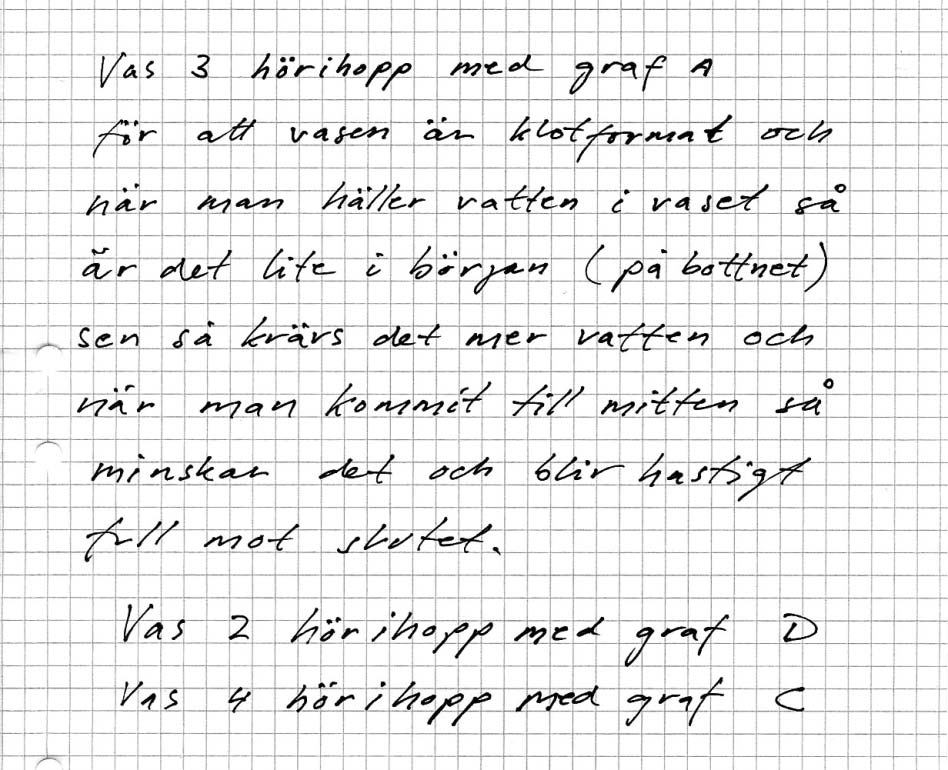 Vas 3 hörihopp med graf A
för att vasen är klotformat och
när man häller vatten i vaset så
är det lite i början (på bottnet)
sen så krärs det mer vatten och
när man kommit till mitten så
minskar det och blir hastigt
full mot slutet.
Vas 2 hörihopp med graf D
Vas 4 hörihopp med graf C